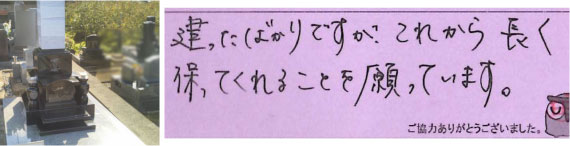 建ったばかりですが、これから長く
保ってくれることを願っています。
ご協力ありがとうございました。